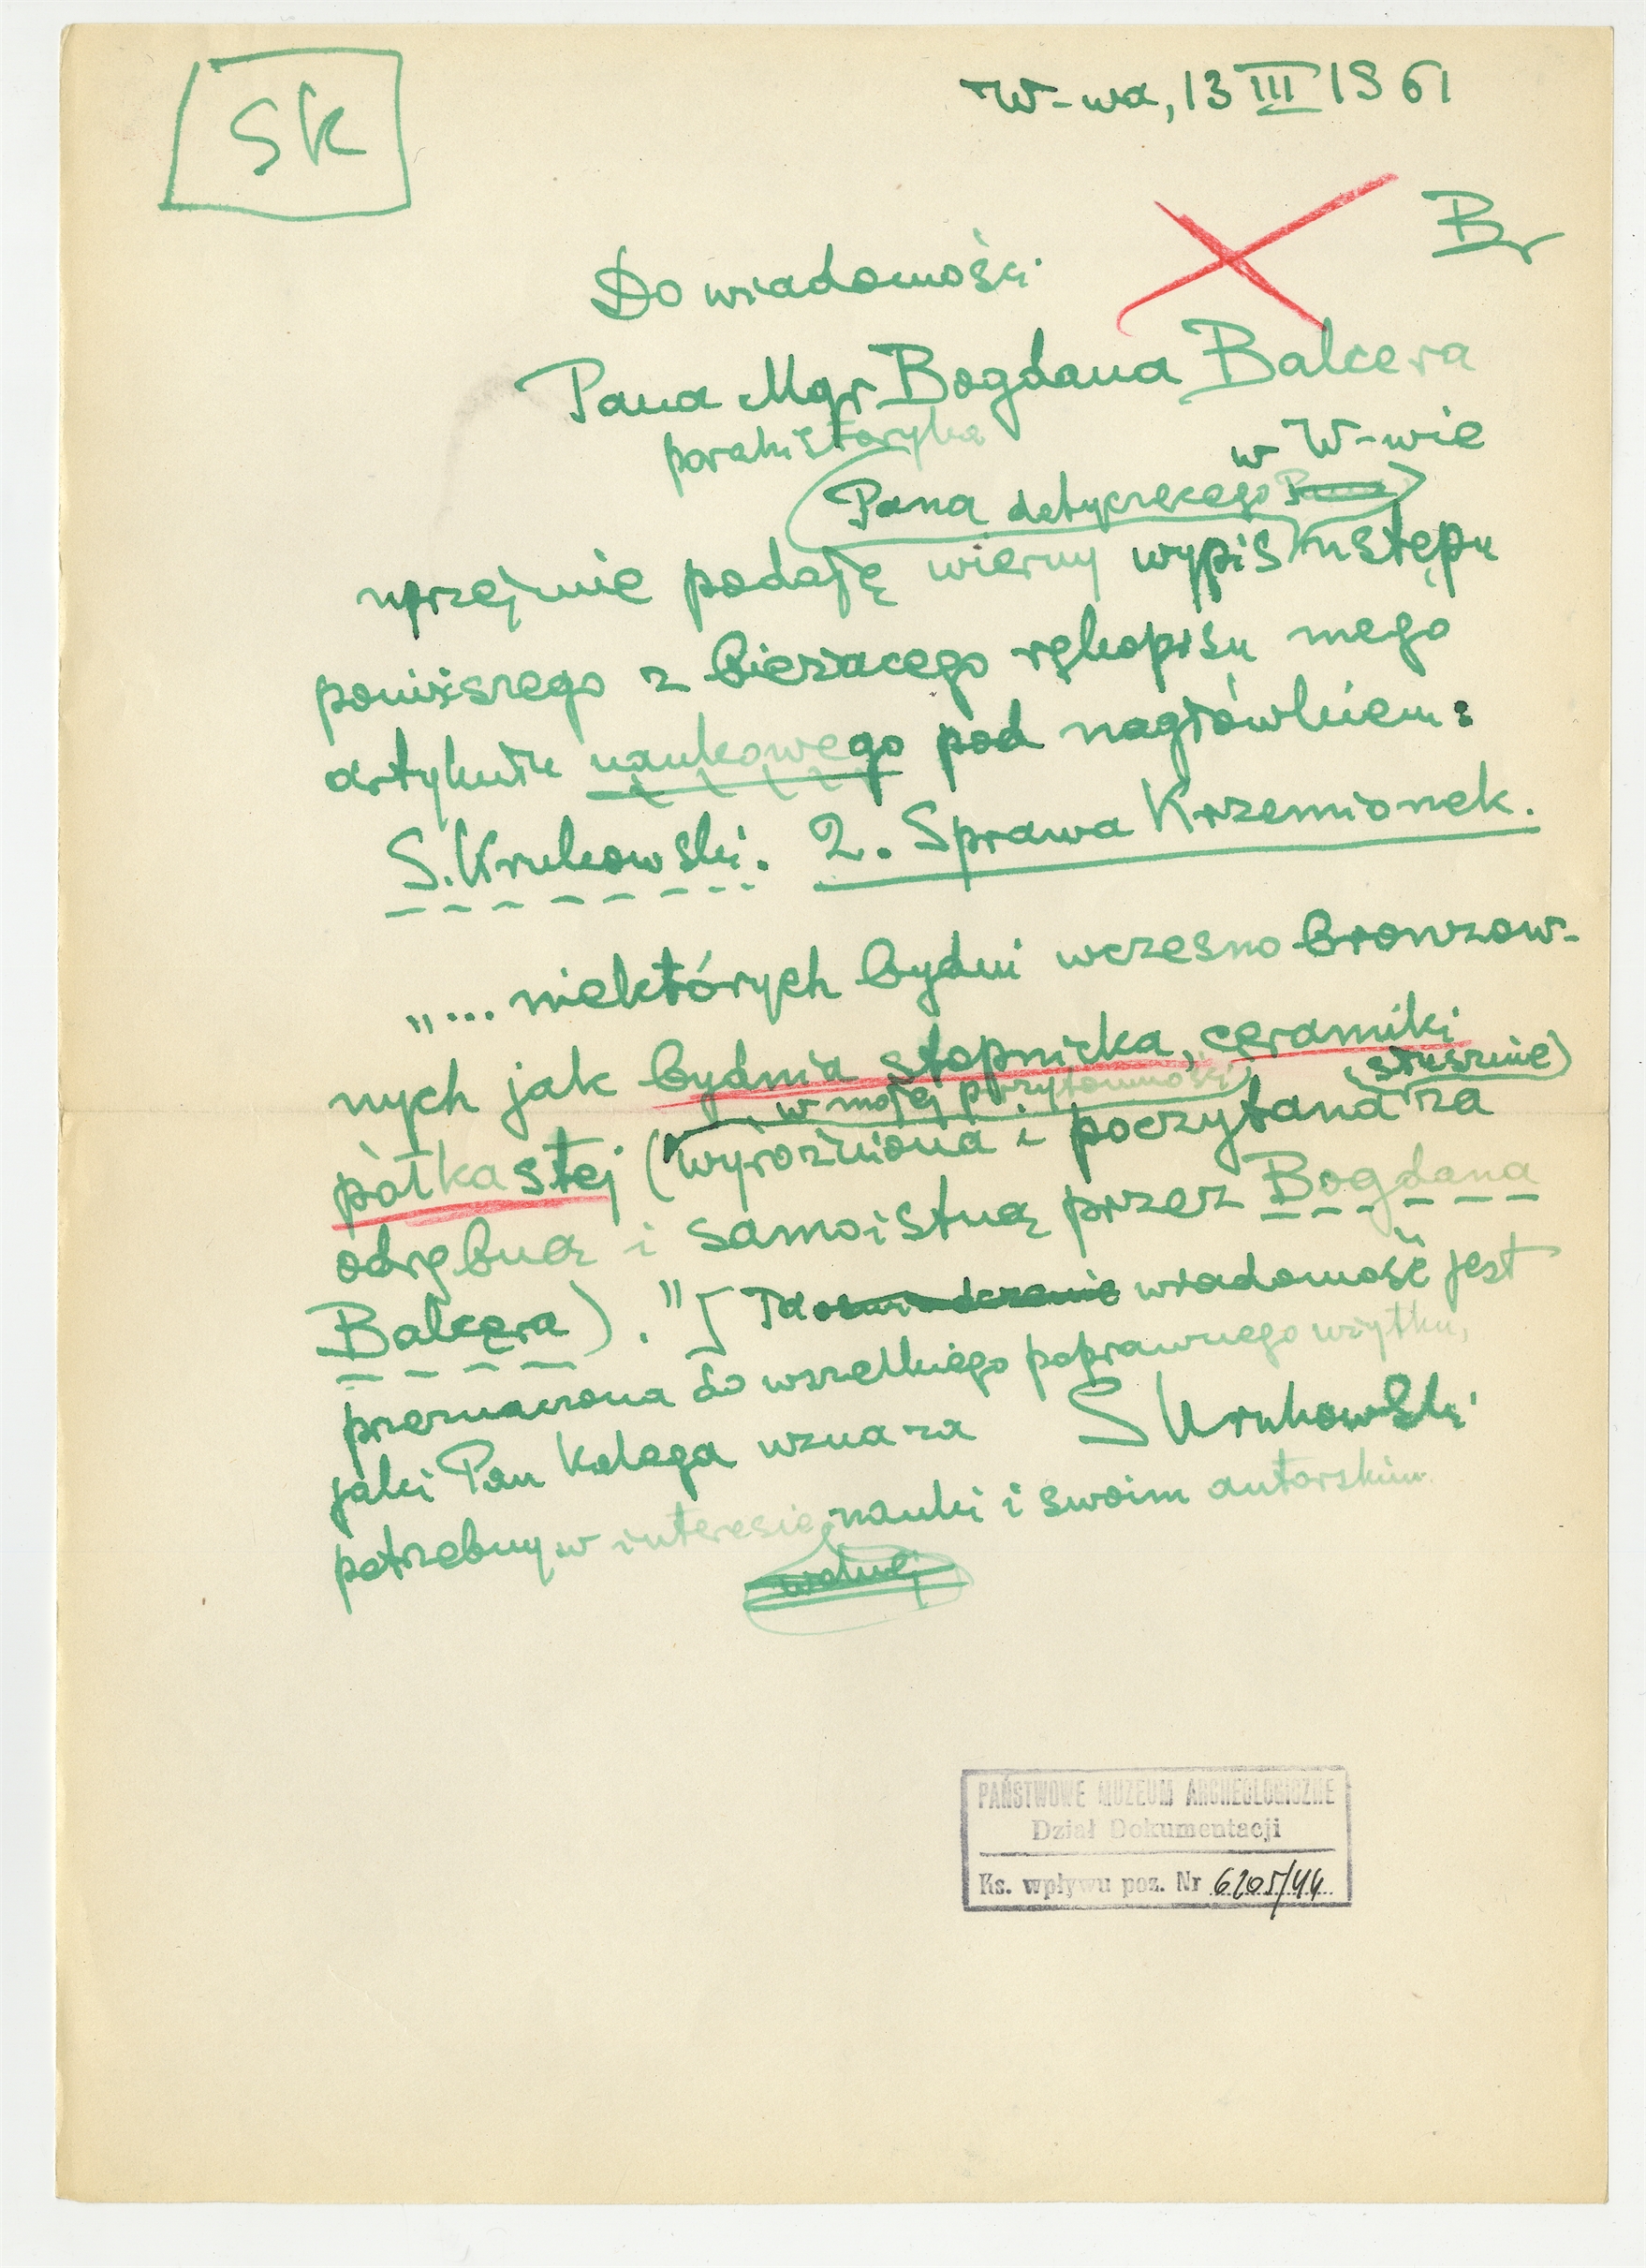 SK
W-wa, 13 III 1961
Br
Do wiadomości
Pana Mgr Bogdana Balcera
parahistoryka
w W-wie
Pana dotyczącego
uprzejmie podaję wierny wypis ustępu
poniższego z bieżącego rękopisu mego
artykułu naukowego pod nagłówkiem:
S. Krukowski. 2. Sprawa Krzemionek.
"... niektórych bydni wczesno bronzow-
nych jak bydnia stopnicka, ceramiki
w mojej przytomności słusznie)
półkastej (wyróżniona i poczytana za
odrębną i samoistną przez Bogdana
Balcera)." [Ta wiadomość jest
przeznaczona do wszelkiego poprawnego użytku,
jaki Pan Kolega uzna za SKrukowski
potrzebny w interesie nauki i swoim autorskim.
wolnej
PAŃSTWOWE MUZEUM ARCHEOLOGICZNE
Dział Dokumentacji
Ks. wpływu poz. Nr 6205/44